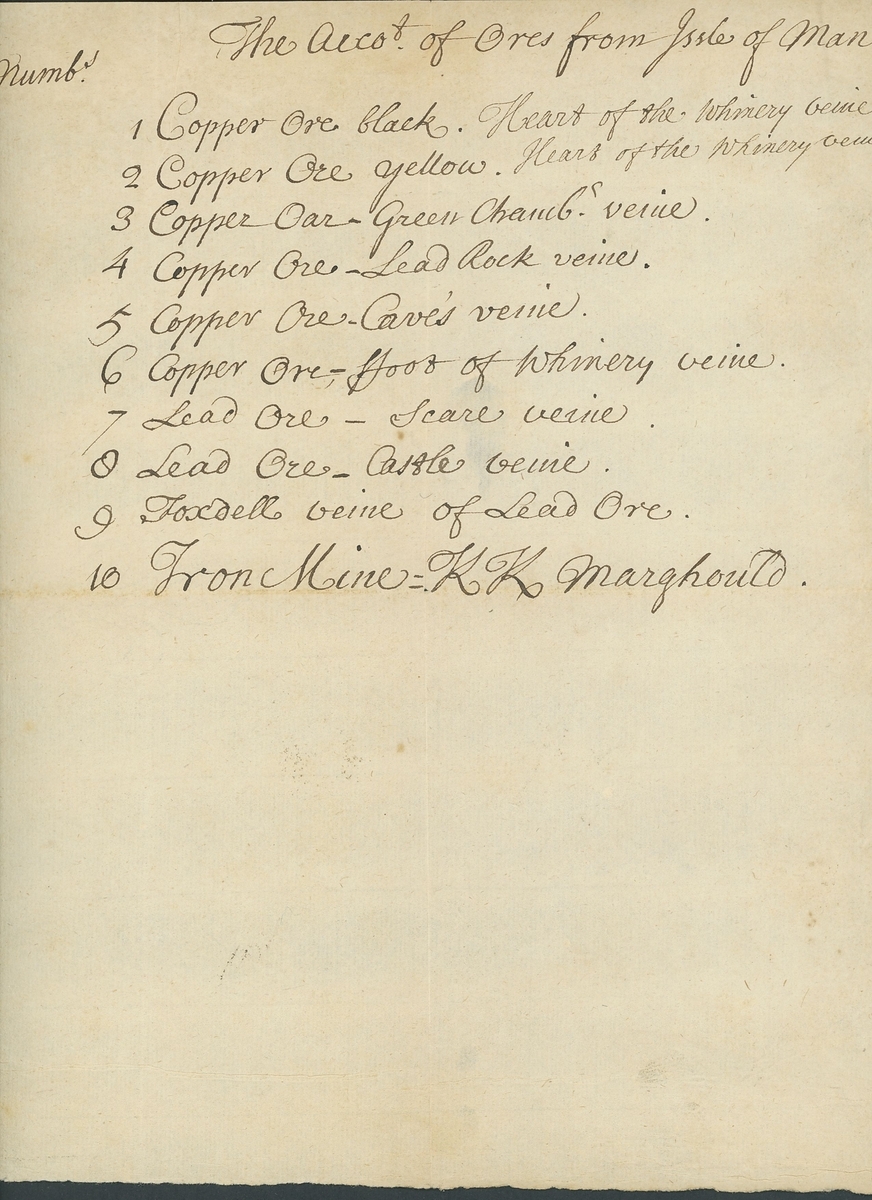 The Acco.t of Ores from Jssle of Man
Numb.s
1 Copper Ore black. Heart of the Whinery veine
2 Copper Ore yellow. Heart of the Whinery vein
3 Copper Oar - Green Chamb.r veine.
4 Copper Ore - Lead Rock veine.
5 Copper Ore - Cave's veine.
6 Copper Ore - ffoot of Whinery veine.
7 Lead Ore - Scare veine.
8 Lead Ore - Castle veine.
9 Foxdell veine of Lead Ore.
10 Iron Mine = KK Marghould.